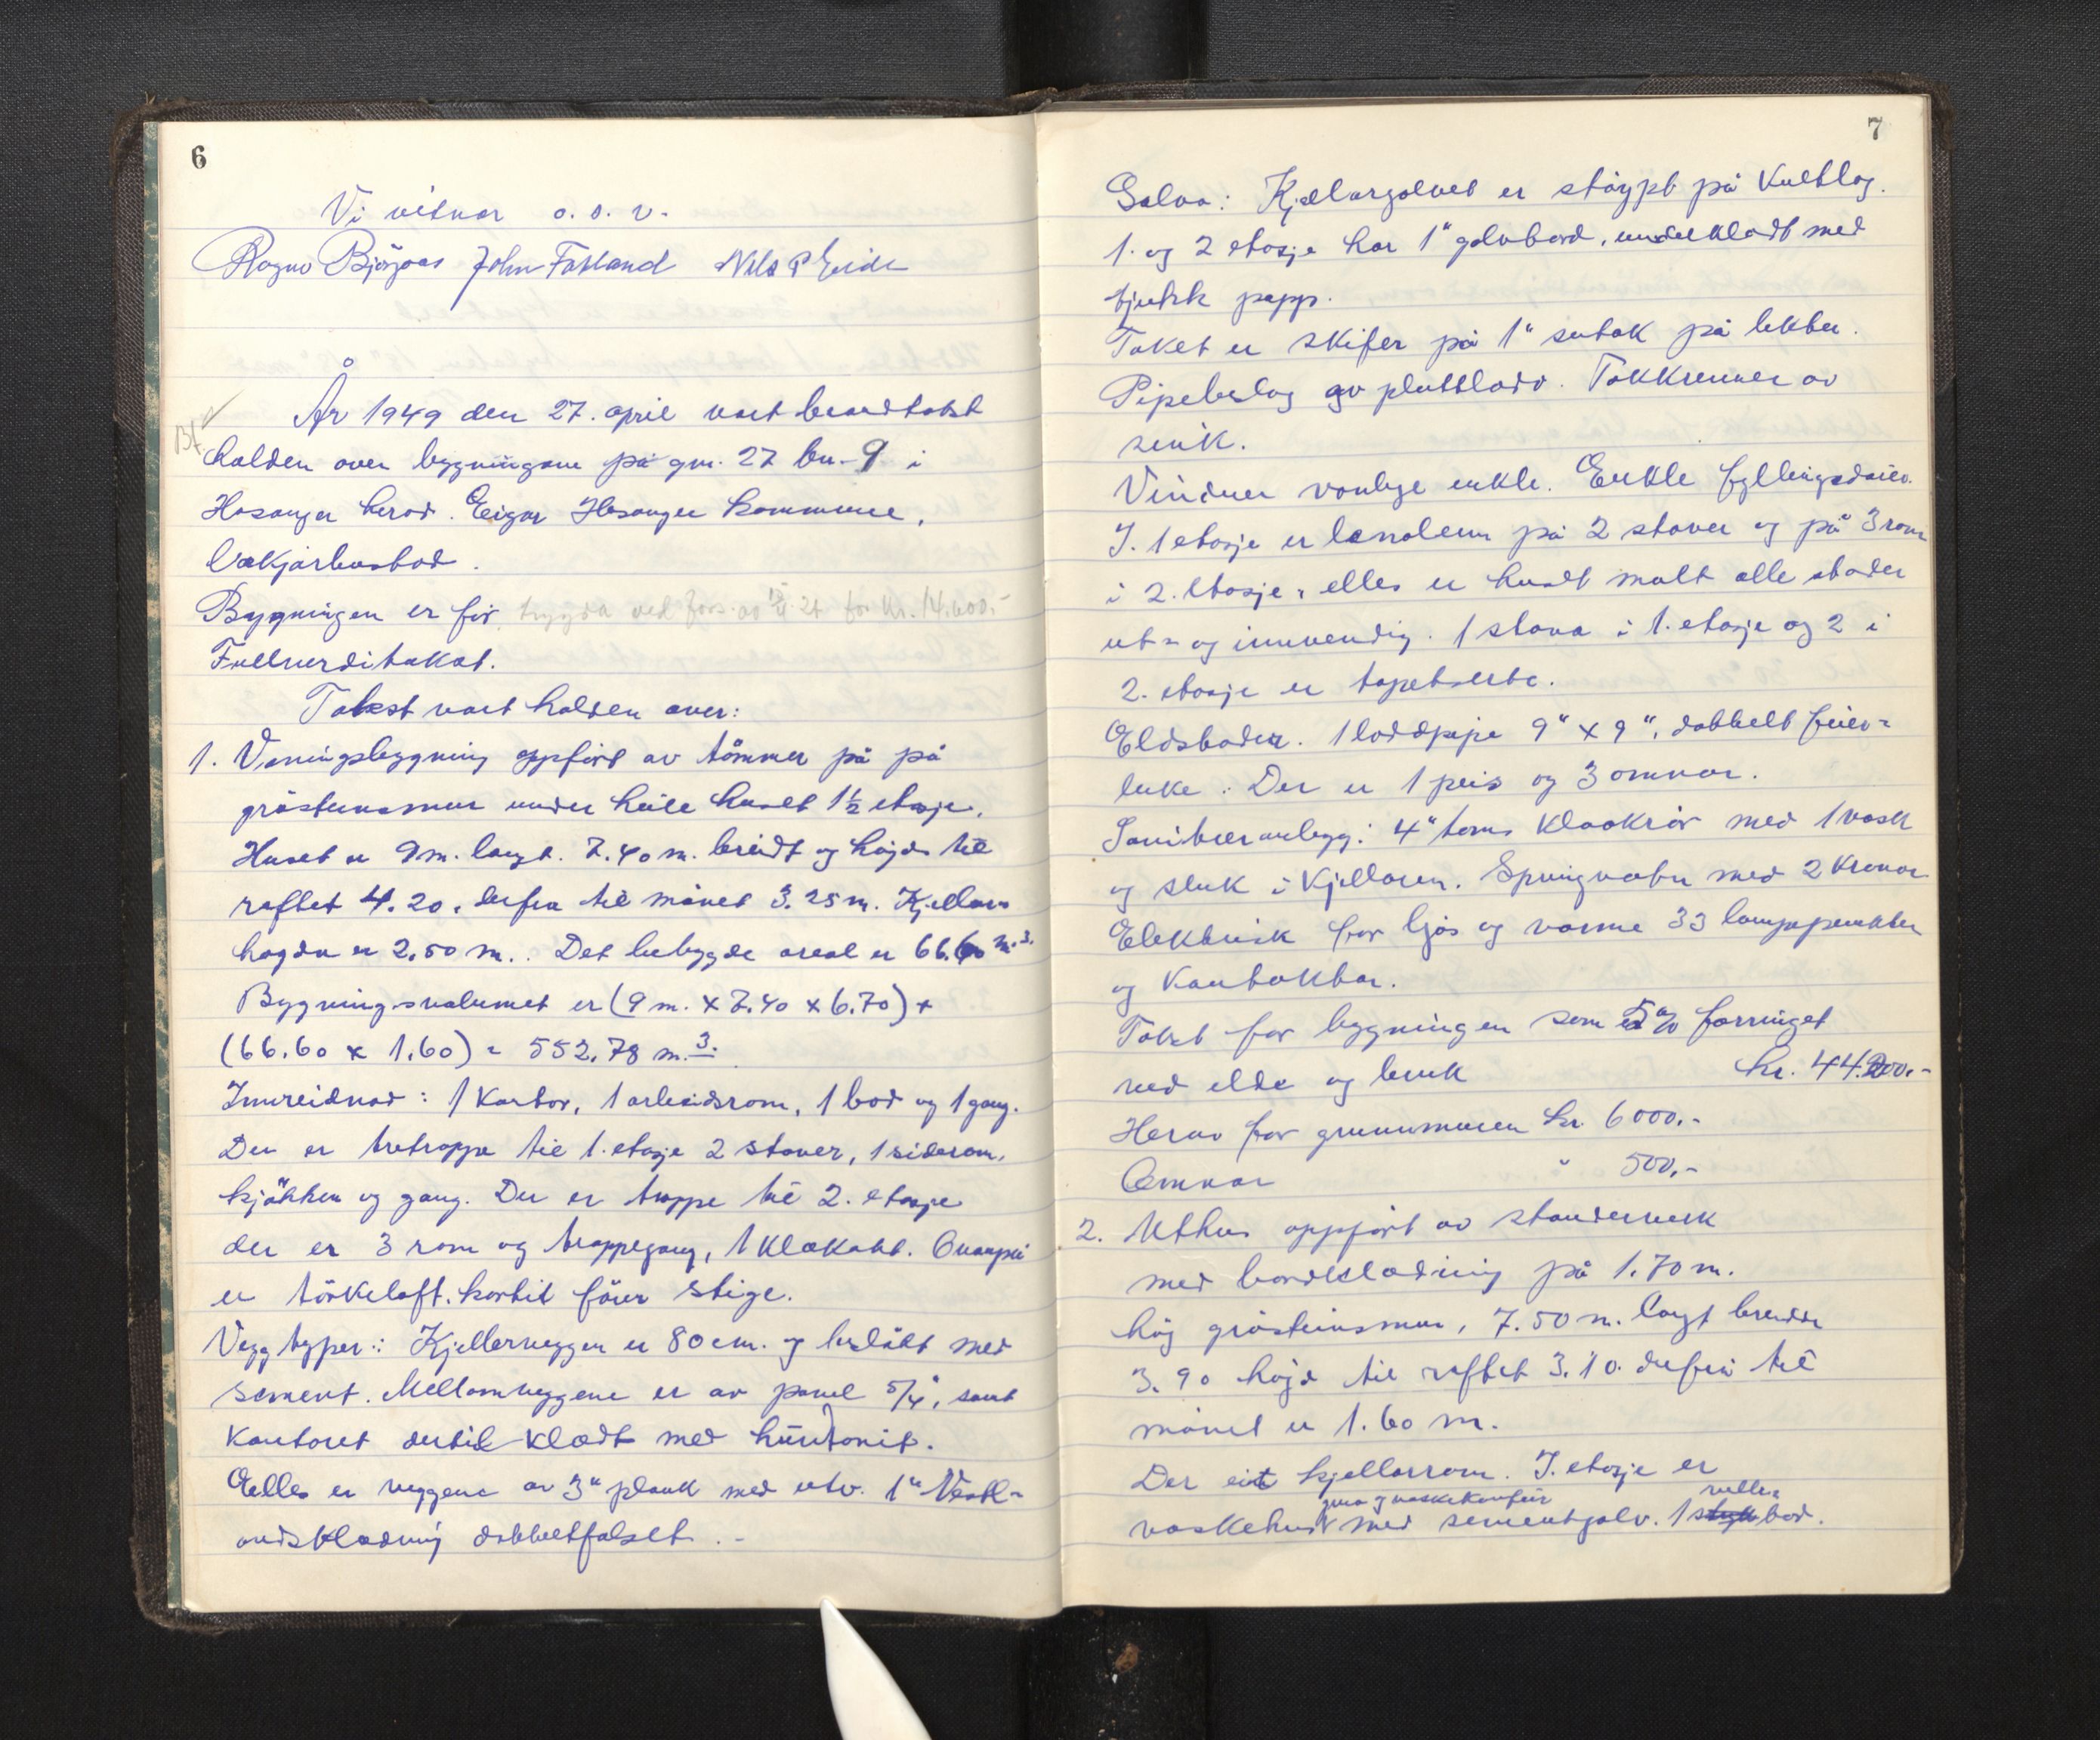 6
Vi vitnar o.s.v.
Ragnv Björgaas John Fotland Nils P Eide
År 1949 den 27. april vart brandtakst
Bf.
halden over bygningane på gnr. 27 bn. 9 i
Hosanger herad. Eigar Hosanger kommune,
Lækjarbustad.
Bygningen er för trygda ved fors. av 21 for kr. 14.600.-
Fullverditakst.
Takst vart halden over:
1. Våningsbygning oppfört av tömmer på på
gråsteinsmur under heile huset 1½ etasje.
Huset er 9 m. langt. 7.40 m. breidt og högde til
raftet 4.20, derfra til mönet 3.25 m. Kjellar
högda er 2.50 m.. Det bebygde areal er 66.60 m.3.
Bygningsvolumet er (9 m. x 7.40 x 6.70) +
(66.60 x 1.60) = 552.78 m.3.
Innreidnad: 1 Kontor, 1 arbeidsrom, 1 bod og 1 gang.
Der er tretrappe til 1. etasje 2 stover, 1 siderom,
kjökken og gang. Der er trappe til 2. etasje
der er 3 rom og trappegang, 1 klekott. Ovanpå
er törkeloft. hertil förer stige.
Vegg typer: Kjellerveggen er 80 cm. og beslått med
sement. Mellomveggene er av panel 5/4", samt
kontoret dertil klædt med huntonit.
Elles er veggene av 3" plank med utv. 1" Vestl-
andsklædning dobbeltfalset. -
7
Golva: Kjellargolvet er stöypt på Kultlag.
1. og 2 etasje har 1" golvbord, underkledt med
tjukk papp.
Taket er skifer på 1" sutak på lekter.
Pipebeslag av plettlado. Takrenner av
sink.
Vinduer vanlege enkle. Enkle fyllingsdörer.
I. 1 etasje er lenoleum på 2 stover og på 3 rom
i 2. etasje, elles er huset malt alle stader
ut- og innvendig. 1 stova i 1. etasje og 2 i
2. etasje er tapetserte.
Eldstader. 1 loddpipe 9" x 9", dobbelt feier-
luke. Der er 1 peis og 3 omnar.
Sanitæranlegg: 4" toms kloakrör med 1 vask
og sluk i kjellaren. Springvatn med 2 kranar
Elektrisk for ljos og varme 33 lampepunkter
og Kontaktar.
Takst for bygningen som er 5% forringet
ved elde og bruk kr. 44.200.-
Herav for grunnmuren kr. 6000.-
Omnar " 500.-
2. Uthus oppfört av standerverk
med bordklædning på 1.70 m.
hög gråsteinsmur, 7.50 m. langt breidde
3.90 högd til raftet 3.10. derfrå til
mönet er 1.60 m.
Der eit kjellarrom. I. etasje er
grua og vaskekomfeir
vaskehus med sementgolv. 1 bod.